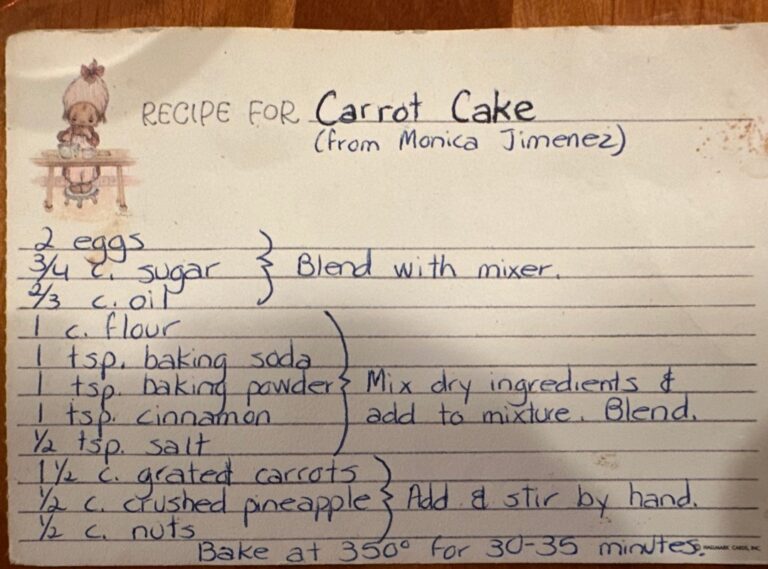 RECIPE FOR Carrot Cake
(from Monica Jimenez)
2 eggs
3/4 c. sugar } Blend with mixer.
2/3 c. oil
1 c. flour
1 tsp. baking soda
1 tsp. baking powder } Mix dry ingredients &
1 tsp. cinnamon add to mixture. Blend.
1/2 tsp. salt
1 1/2 c. grated carrots
1/2 c. crushed pineapple } Add & stir by hand.
1/2 c. nuts
Bake at 350° for 30-35 minutes.
HALLMARK CARDS, INC.